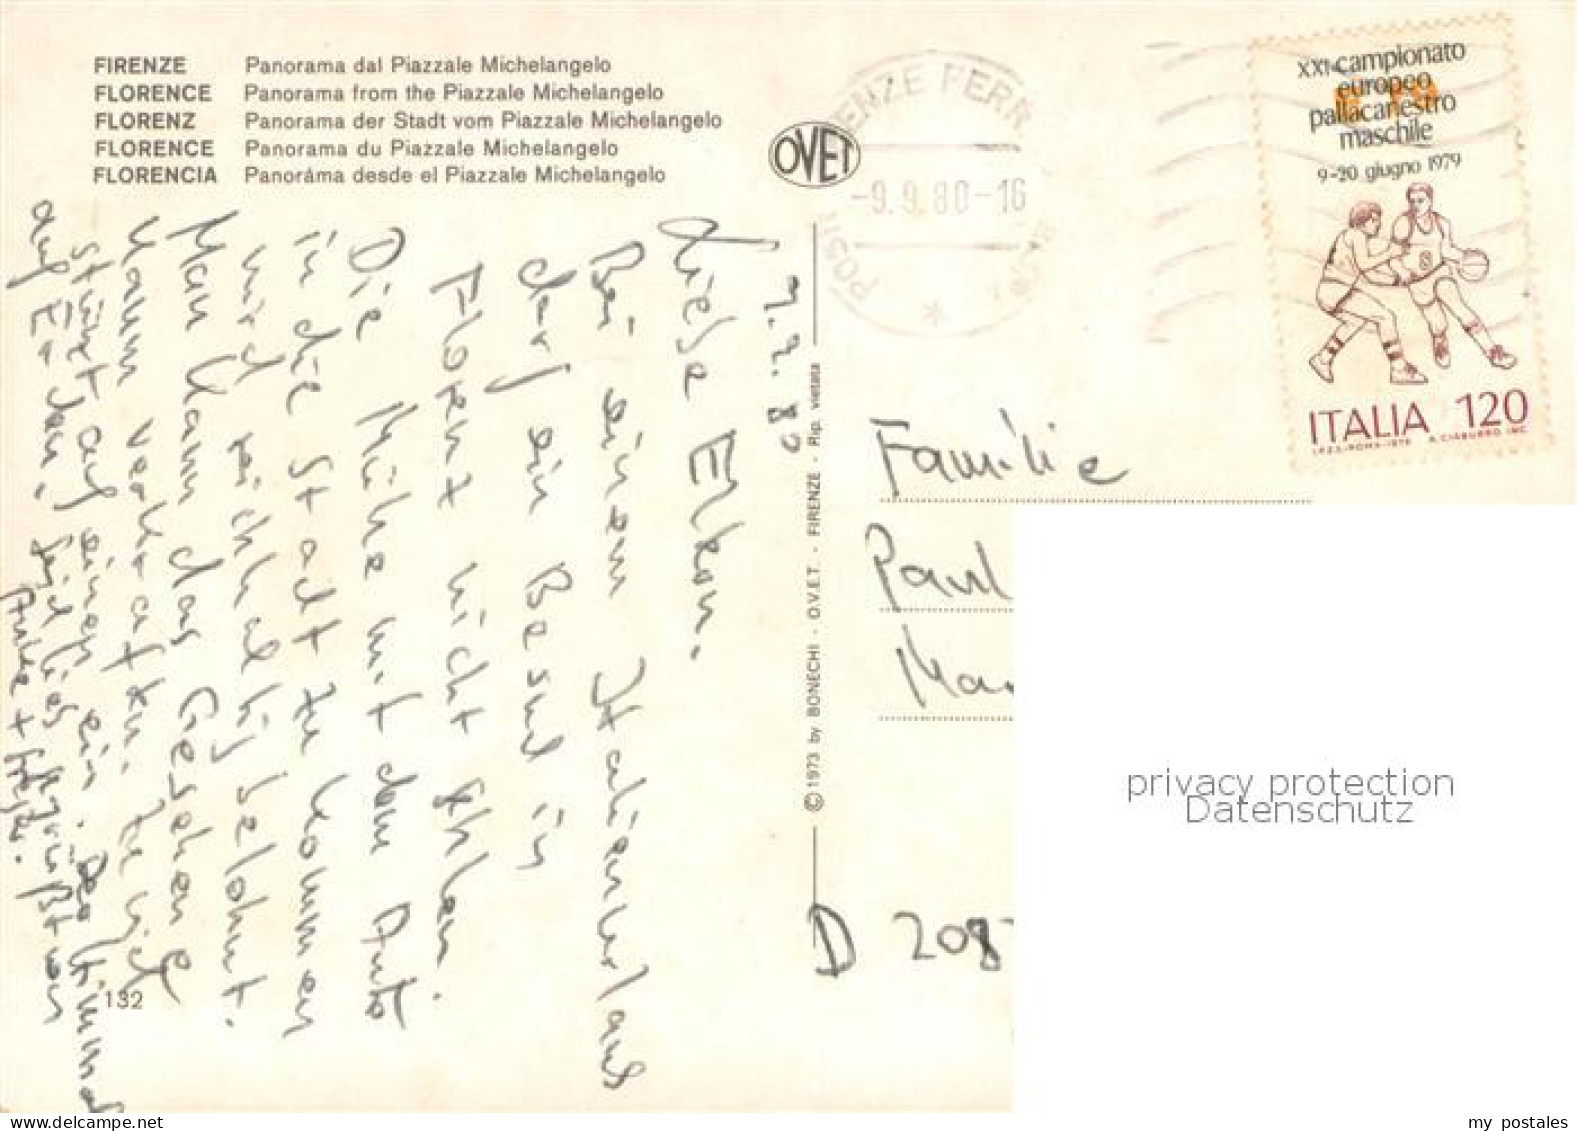 FIRENZE Panorama dal Piazzale Michelangelo
FLORENCE Panorama from the Piazzale Michelangelo
FLORENZ Panorama der Stadt vom Piazzale Michelangelo
FLORENCE Panorama du Piazzale Michelangelo
FLORENCIA Panoráma desde el Piazzale Michelangelo
OVET
ENZE FERR
-9.9.80-16
XXI campionato
europeo
pallacanestro
maschile
9-20 giugno 1979
ITALIA 120
I.P.Z.S.-ROMA-1979 A. CIABURRO INC.
9.9.80
Liebe Eltern.
Bei einem Italienurlaub
darf ein Besuch in
Florenz nicht fehlen.
Die Mühe mit dem Auto
in die Stadt zu kommen
wird reichhaltig belohnt.
Man kann das Gesehene
kaum verkraften. Zu viel
stürzt auf einen ein. Der Himmel
auf Erden. Seid lieb gegrüßt von
© 1973 by BONECHI - O.V.E.T. - FIRENZE - Rip. vietata
Familie
Paul
Ma
D 208
132
privacy protection
Datenschutz
delcampe.net
my_postales